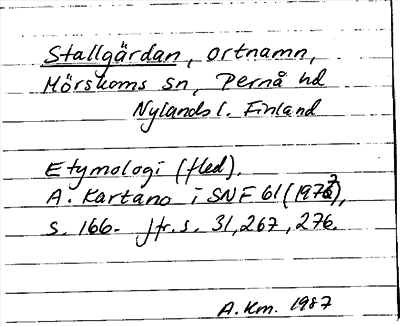 Stallgärdan, ortnamn,
Mörskoms sn, Pernå hd
Nylands l. Finland
Etymologi (fled).
A. Kartano i SNF 61 (1977),
s. 166. Jfr. s. 31, 267, 276.
A.Km. 1987